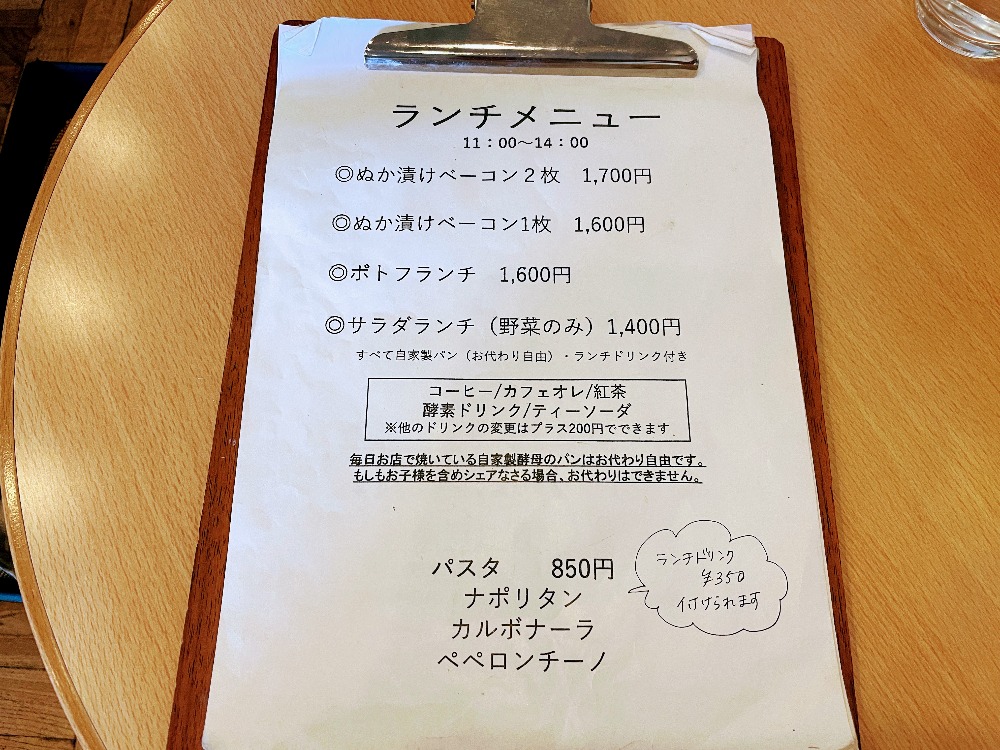 ランチメニュー
11：00～14：00
◎ぬか漬けベーコン２枚　1,700円
◎ぬか漬けベーコン1枚　1,600円
◎ポトフランチ　1,600円
◎サラダランチ（野菜のみ）1,400円
すべて自家製パン（お代わり自由）・ランチドリンク付き
コーヒー/カフェオレ/紅茶
酵素ドリンク/ティーソーダ
※他のドリンクの変更はプラス200円でできます
毎日お店で焼いている自家製酵母のパンはお代わり自由です。
もしもお子様を含めシェアなさる場合、お代わりはできません。
パスタ　　850円
ナポリタン
カルボナーラ
ペペロンチーノ
ランチドリンク
¥350
付けられます